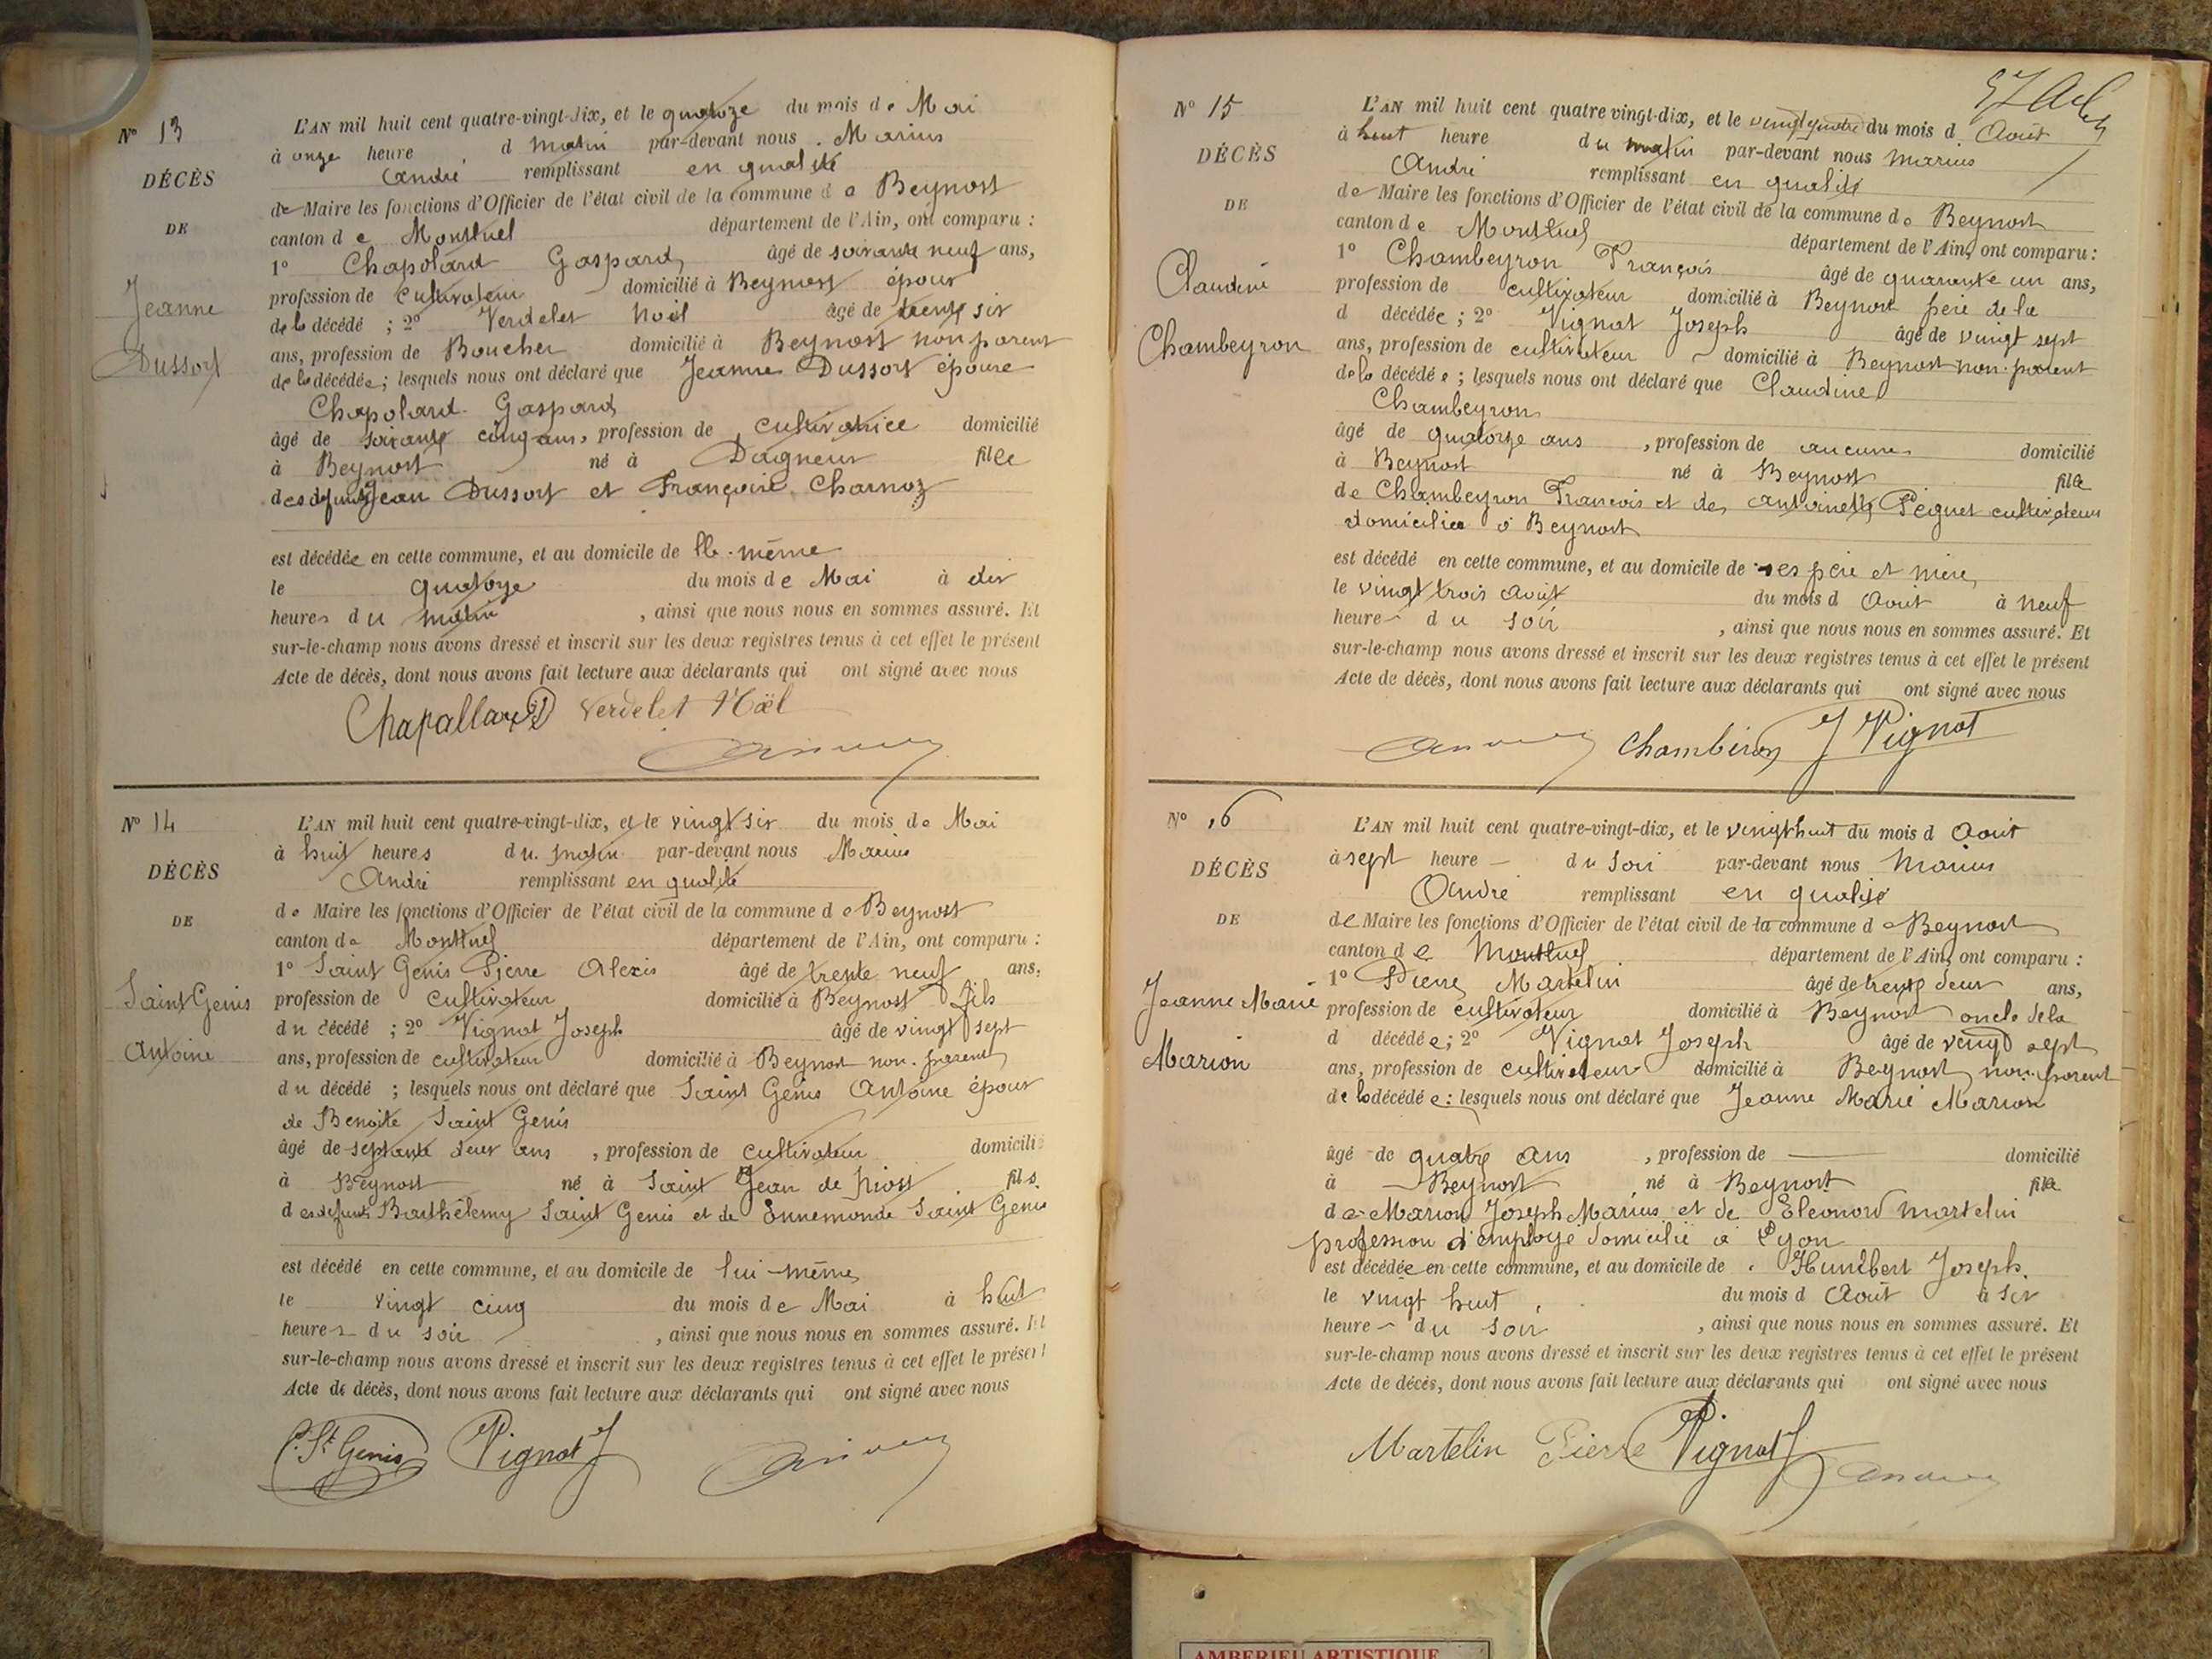 N° 13
DÉCÈS
DE
Jeanne
Dussort
L'AN mil huit cent quatre-vingt-dix, et le quatorze du mois de Mai
à onze heure d matin par-devant nous Marius
André remplissant en qualité
de Maire les fonctions d'Officier de l'état civil de la commune de Beynost
canton de Montluel département de l'Ain, ont comparu :
1° Chapolard Gaspard âgé de soixante neuf ans,
profession de cultivateur domicilié à Beynost époux
de la décédé ; 2° Verdelet Noël âgé de trente six
ans, profession de Boucher domicilié à Beynost non parent
de la décédée ; lesquels nous ont déclaré que Jeanne Dussort épouse
Chapolard Gaspard
âgé de soixante cinq ans, profession de cultivatrice domicilié
à Beynost né à Dagneux fille
des défunts Jean Dussort et Françoise Charnoz
est décédée en cette commune, et au domicile de Elle-même
le quatorze du mois de Mai à dix
heures du matin , ainsi que nous nous en sommes assuré. Et
sur-le-champ nous avons dressé et inscrit sur les deux registres tenus à cet effet le présent
Acte de décès, dont nous avons fait lecture aux déclarants qui ont signé avec nous
Chapallard Verdelet Noël
N° 14
DÉCÈS
DE
Saint Genis
Antoine
L'AN mil huit cent quatre-vingt-dix, et le vingt six du mois de Mai
à huit heures du matin par-devant nous Marius
André remplissant en qualité
de Maire les fonctions d'Officier de l'état civil de la commune de Beynost
canton de Montluel département de l'Ain, ont comparu :
1° Saint Genis Pierre Alexis âgé de trente neuf ans,
profession de cultivateur domicilié à Beynost fils
du décédé ; 2° Vignat Joseph âgé de vingt sept
ans, profession de cultivateur domicilié à Beynost non parent
du décédé ; lesquels nous ont déclaré que Saint Genis Antoine époux
de Benoite Saint Genis
âgé de septante deux ans , profession de cultivateur domicilié
à Beynost né à Saint Jean de Niost fils
des défunts Barthélemy Saint Genis et de Ennemonde Saint Genis
est décédé en cette commune, et au domicile de lui-même
le vingt cinq du mois de Mai à huit
heures du soir , ainsi que nous nous en sommes assuré. Et
sur-le-champ nous avons dressé et inscrit sur les deux registres tenus à cet effet le présent
Acte de décès, dont nous avons fait lecture aux déclarants qui ont signé avec nous
P. St Genis Vignat J
N° 15
DÉCÈS
DE
Claudine
Chambeyron
L'AN mil huit cent quatre vingt-dix, et le vingt quatre du mois d Août
à huit heure du matin par-devant nous Marius
André remplissant en qualité
de Maire les fonctions d'Officier de l'état civil de la commune de Beynost
canton de Montluel département de l'Ain, ont comparu :
1° Chambeyron François âgé de quarante un ans,
profession de cultivateur domicilié à Beynost père de la
d décédée ; 2° Vignat Joseph âgé de vingt sept
ans, profession de cultivateur domicilié à Beynost non parent
de la décédée ; lesquels nous ont déclaré que Claudine
Chambeyron
âgé de quatorze ans , profession de aucune domicilié
à Beynost né à Beynost fille
de Chambeyron François et de Antoinette Peignet cultivateurs
domiciliés à Beynost
est décédé en cette commune, et au domicile de ses père et mère
le vingt trois août du mois d Août à neuf
heure du soir , ainsi que nous nous en sommes assuré. Et
sur-le-champ nous avons dressé et inscrit sur les deux registres tenus à cet effet le présent
Acte de décès, dont nous avons fait lecture aux déclarants qui ont signé avec nous
Chambéron J Vignat
N° 16
DÉCÈS
DE
Jeanne Marie
Marion
L'AN mil huit cent quatre-vingt-dix, et le vingt huit du mois d Août
à sept heure du soir par-devant nous Marius
André remplissant en qualité
de Maire les fonctions d'Officier de l'état civil de la commune de Beynost
canton de Montluel département de l'Ain, ont comparu :
1° Pierre Martelin âgé de trente deux ans,
profession de cultivateur domicilié à Beynost oncle de la
d décédée ; 2° Vignat Joseph âgé de vingt sept
ans, profession de cultivateur domicilié à Beynost non parent
de la décédée : lesquels nous ont déclaré que Jeanne Marie Marion
âgé de quatre ans , profession de domicilié
à Beynost né à Beynost fille
de Marion Joseph Marius et de Eléonord Martelin
profession d'employé domicilié à Lyon
est décédée en cette commune, et au domicile de Humbert Joseph
le vingt huit du mois d Août à six
heure du soir , ainsi que nous nous en sommes assuré. Et
sur-le-champ nous avons dressé et inscrit sur les deux registres tenus à cet effet le présent
Acte de décès, dont nous avons fait lecture aux déclarants qui ont signé avec nous
Martelin Pierre Vignat J
AMBERIEU ARTISTIQUE